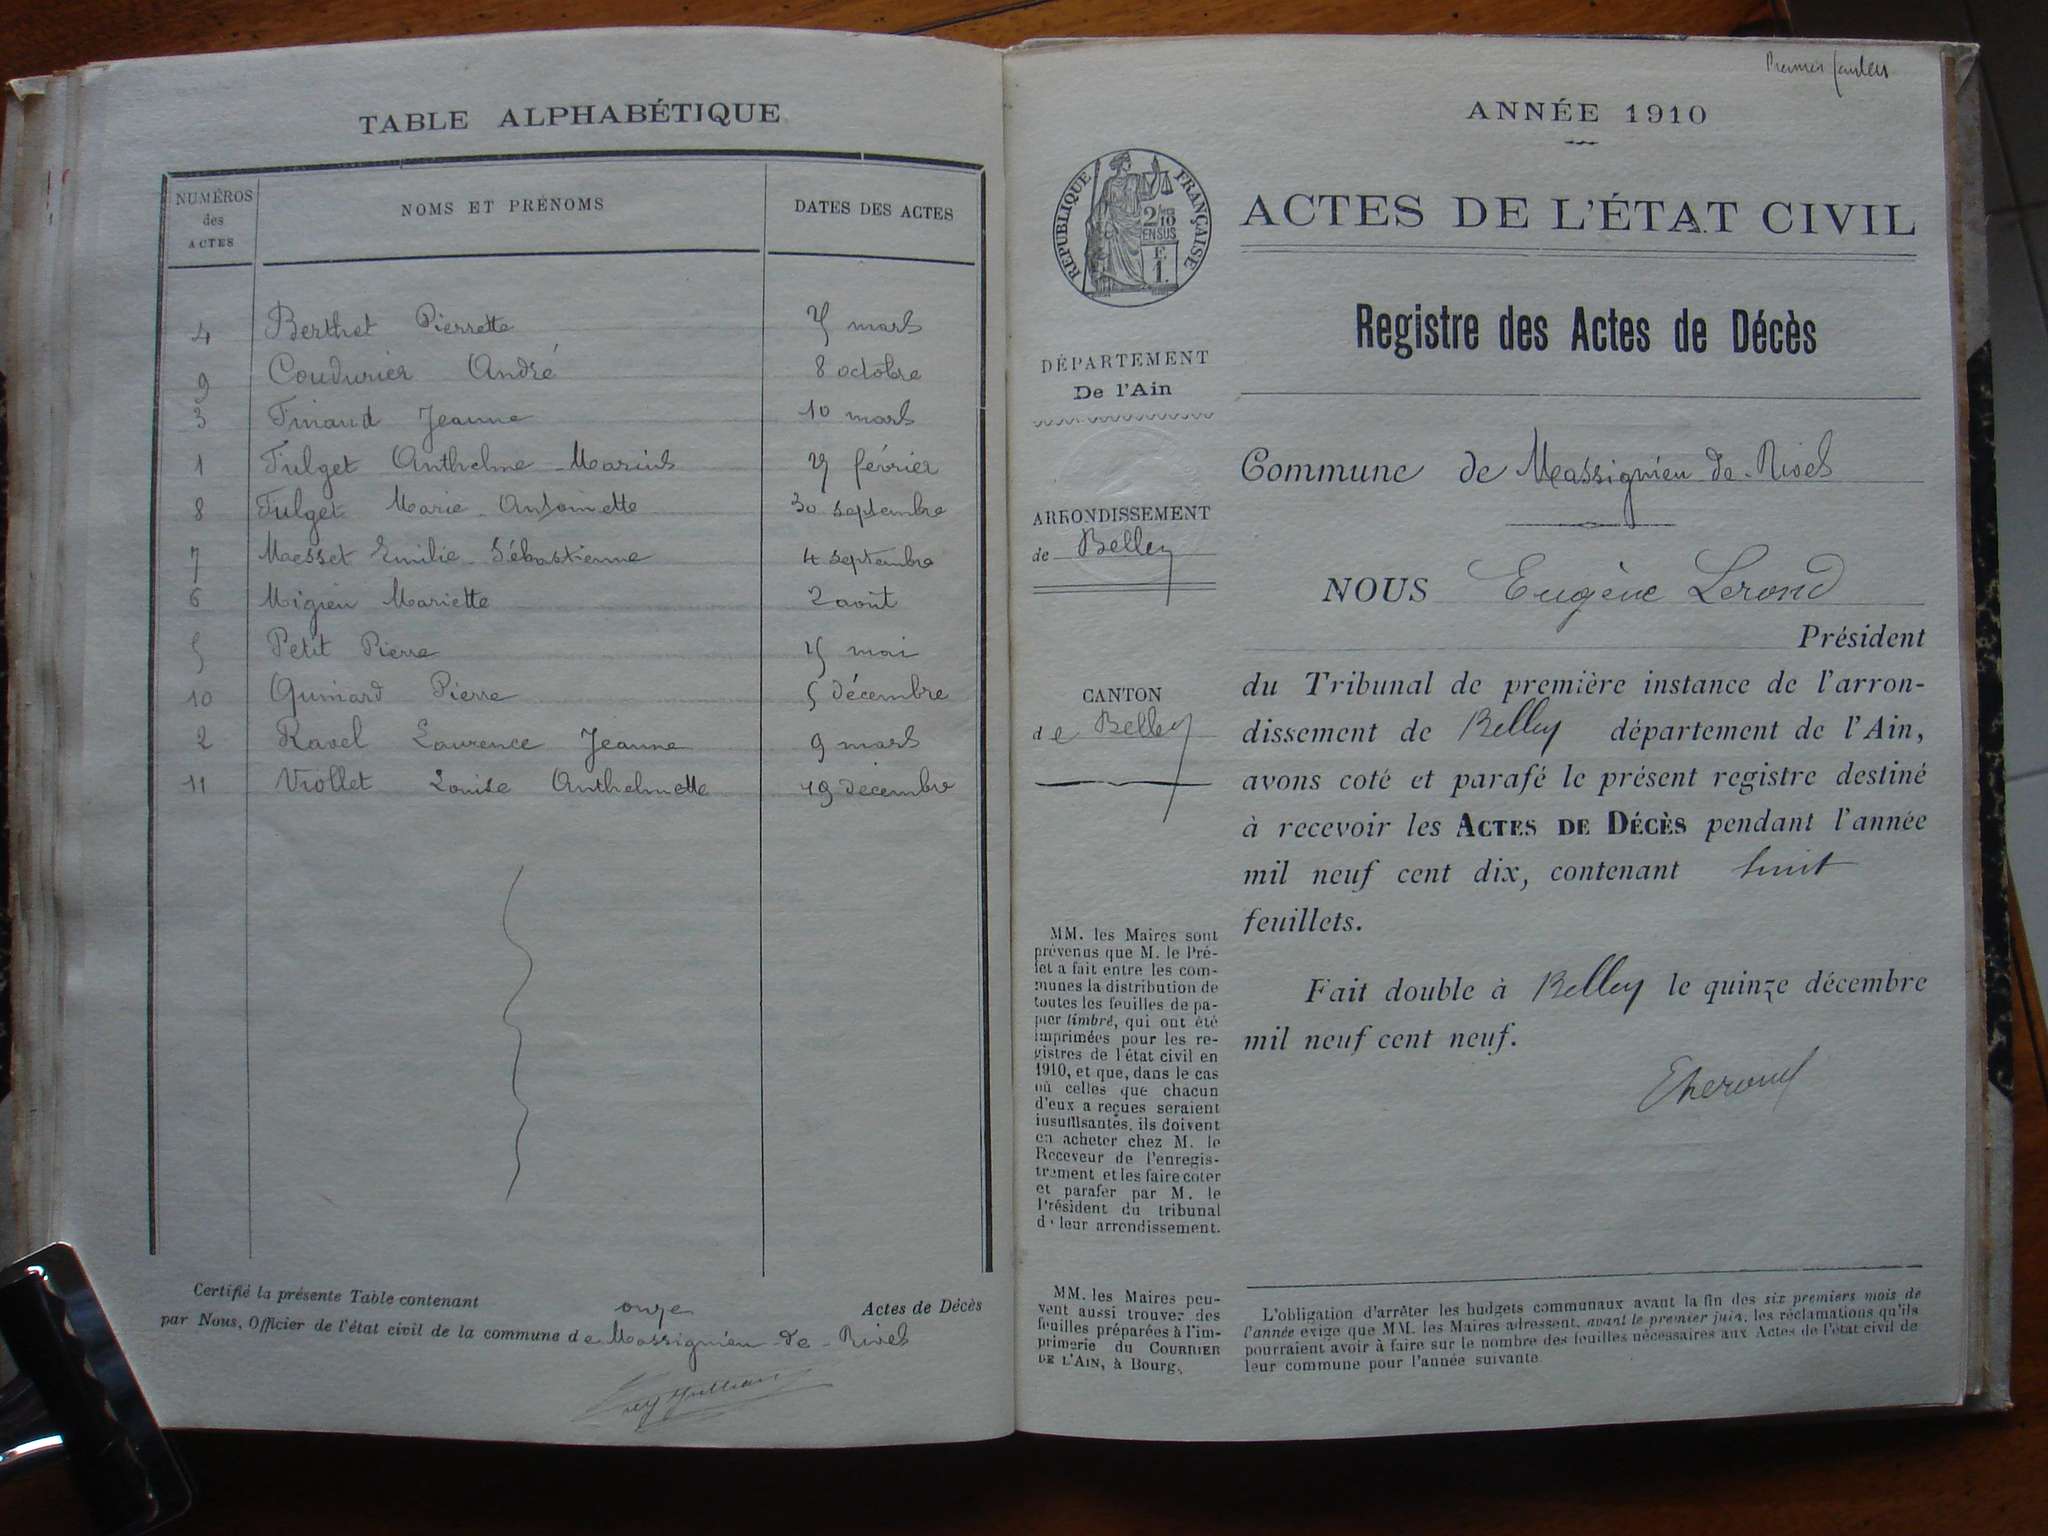 TABLE ALPHABÉTIQUE
NUMÉROS des ACTES
NOMS ET PRÉNOMS
DATES DES ACTES
4 Berthet Pierrette 25 mars
9 Coudurier André 8 octobre
3 Finaud Jeanne 10 mars
1 Fulget Anthelme-Marius février
8 Fulget Marie-Antoinette 30 septembre
7 Messet Emilie-Sébastienne 4 septembre
6 Migieu Mariette 2 août
5 Petit Pierre 25 mai
10 Quinard Pierre 5 décembre
2 Ravel Laurence Jeanne 9 mars
11 Viollet Louise Anthelmette 19 décembre
Certifié la présente Table contenant onze Actes de Décès
par Nous, Officier de l'état civil de la commune de Massignieu-de-Rives
Premier feuillet
ANNÉE 1910
RÉPUBLIQUE FRANÇAISE
2/10
EN SUS
F.
1.
ACTES DE L'ÉTAT CIVIL
Registre des Actes de Décès
DÉPARTEMENT
De l'Ain
ARRONDISSEMENT
de Belley
CANTON
de Belley
MM. les Maires sont
prévenus que M. le Pré-
fet a fait entre les com-
munes la distribution de
toutes les feuilles de pa-
pier timbré, qui ont été
imprimées pour les re-
gistres de l'état civil en
1910, et que, dans le cas
où celles que chacun
d'eux a reçues seraient
insuffisantes, ils doivent
en acheter chez M. le
Receveur de l'enregis-
trement et les faire coter
et parafer par M. le
Président du tribunal
de leur arrondissement.
MM. les Maires peu-
vent aussi trouver des
feuilles préparées à l'im-
primerie du COURRIER
DE L'AIN, à Bourg.
Commune de Massignieu-de-Rives
NOUS Eugène Lerond
Président
du Tribunal de première instance de l'arron-
dissement de Belley département de l'Ain,
avons coté et parafé le présent registre destiné
à recevoir les ACTES DE DÉCÈS pendant l'année
mil neuf cent dix, contenant huit
feuillets.
Fait double à Belley le quinze décembre
mil neuf cent neuf.
L'obligation d'arrêter les budgets communaux avant la fin des six premiers mois de
l'année exige que MM. les Maires adressent, avant le premier juin, les réclamations qu'ils
pourraient avoir à faire sur le nombre des feuilles nécessaires aux Actes de l'état civil de
leur commune pour l'année suivante